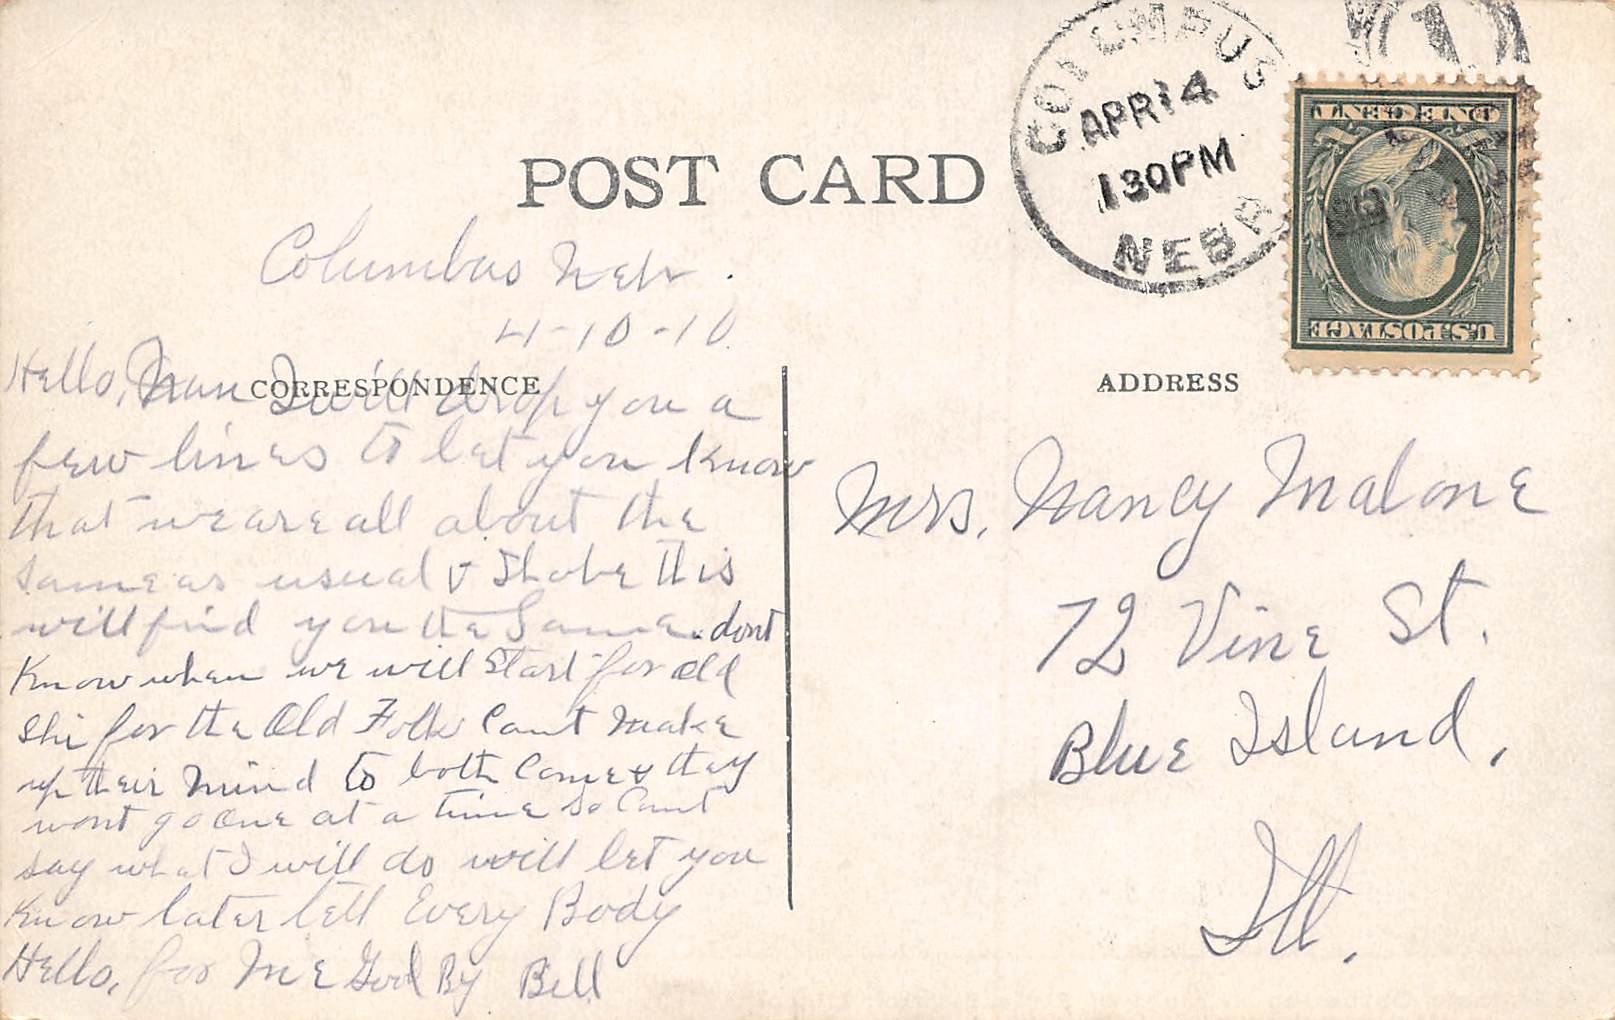 COLUMBUS
APR 14
130PM
NEBR
1
ONE CENT
U.S. POSTAGE
POST CARD
Columbus Nebr.
4-10-10.
CORRESPONDENCE
ADDRESS
Hello, Nan I will drop you a
few lines to let you know
that we are all about the
same as usual & I hope this
will find you the Same. dont
Know when we will Start for Old
Ills for the Old Folks Cant Make
up their Mind to both Come & they
wont go one at a time so Cant
say what I will do will let you
Know later tell Every Body
Hello, for Me Good By Bell
Mrs. Nancy Malone
72 Vine St.
Blue Island,
Ill.